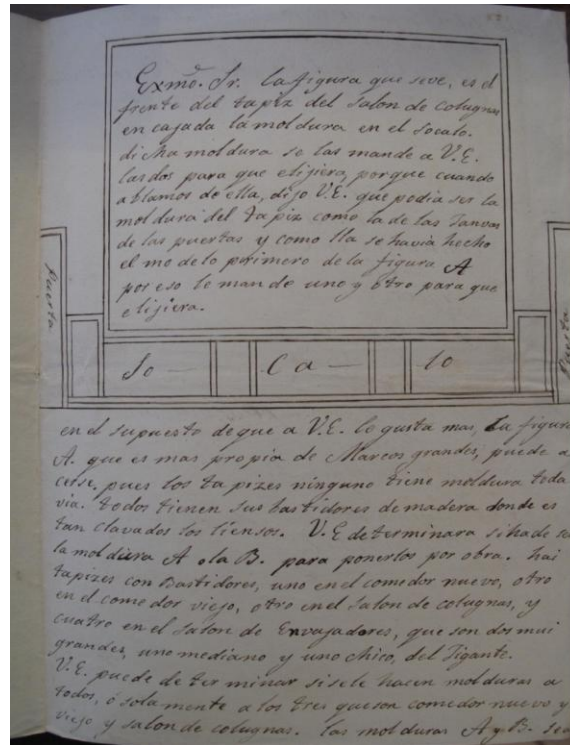 Exmõ. Sr. la figura que seve, es el
frente del tapiz del Salon de colugnas
en cajada la moldura en el Socalo.
dicha moldura se las mande a V.E.
las dos para que elijiera, porque cuando
ablamos de ella, dijo V.E. que podia ser la
moldura del tapiz como la de las Janvas
de las puertas y como lla se havia hecho
el modelo primero de la figura A
por eso le mando uno y otro para que
elijiera.
Puerta
Puerta
So — Ca — lo
en el supuesto de que a V.E. le gusta mas, La figura
A. que es mas propia de Marcos grandes, puede a
cerse. pues los tapizes ninguno tiene moldura toda
via. todos tienen sus bastidores de madera donde es
tan clavados los liensos. V.E determinara si hade ser
la moldura A o la B. para ponerlos por obra. hai
tapizes con Bastidores, uno en el comedor nuevo, otro
en el comedor viejo, otro en el Salon de colugnas, y
cuatro en el Salon de Envajadores, que son dos mui
grandes, uno mediano y uno chico, del Jigante.
V.E. puede determinar si sele hacen molduras a
todos, ó sola mente a los tres que son comedor nuevo y
viejo y salon de colugnas. las molduras A y B.